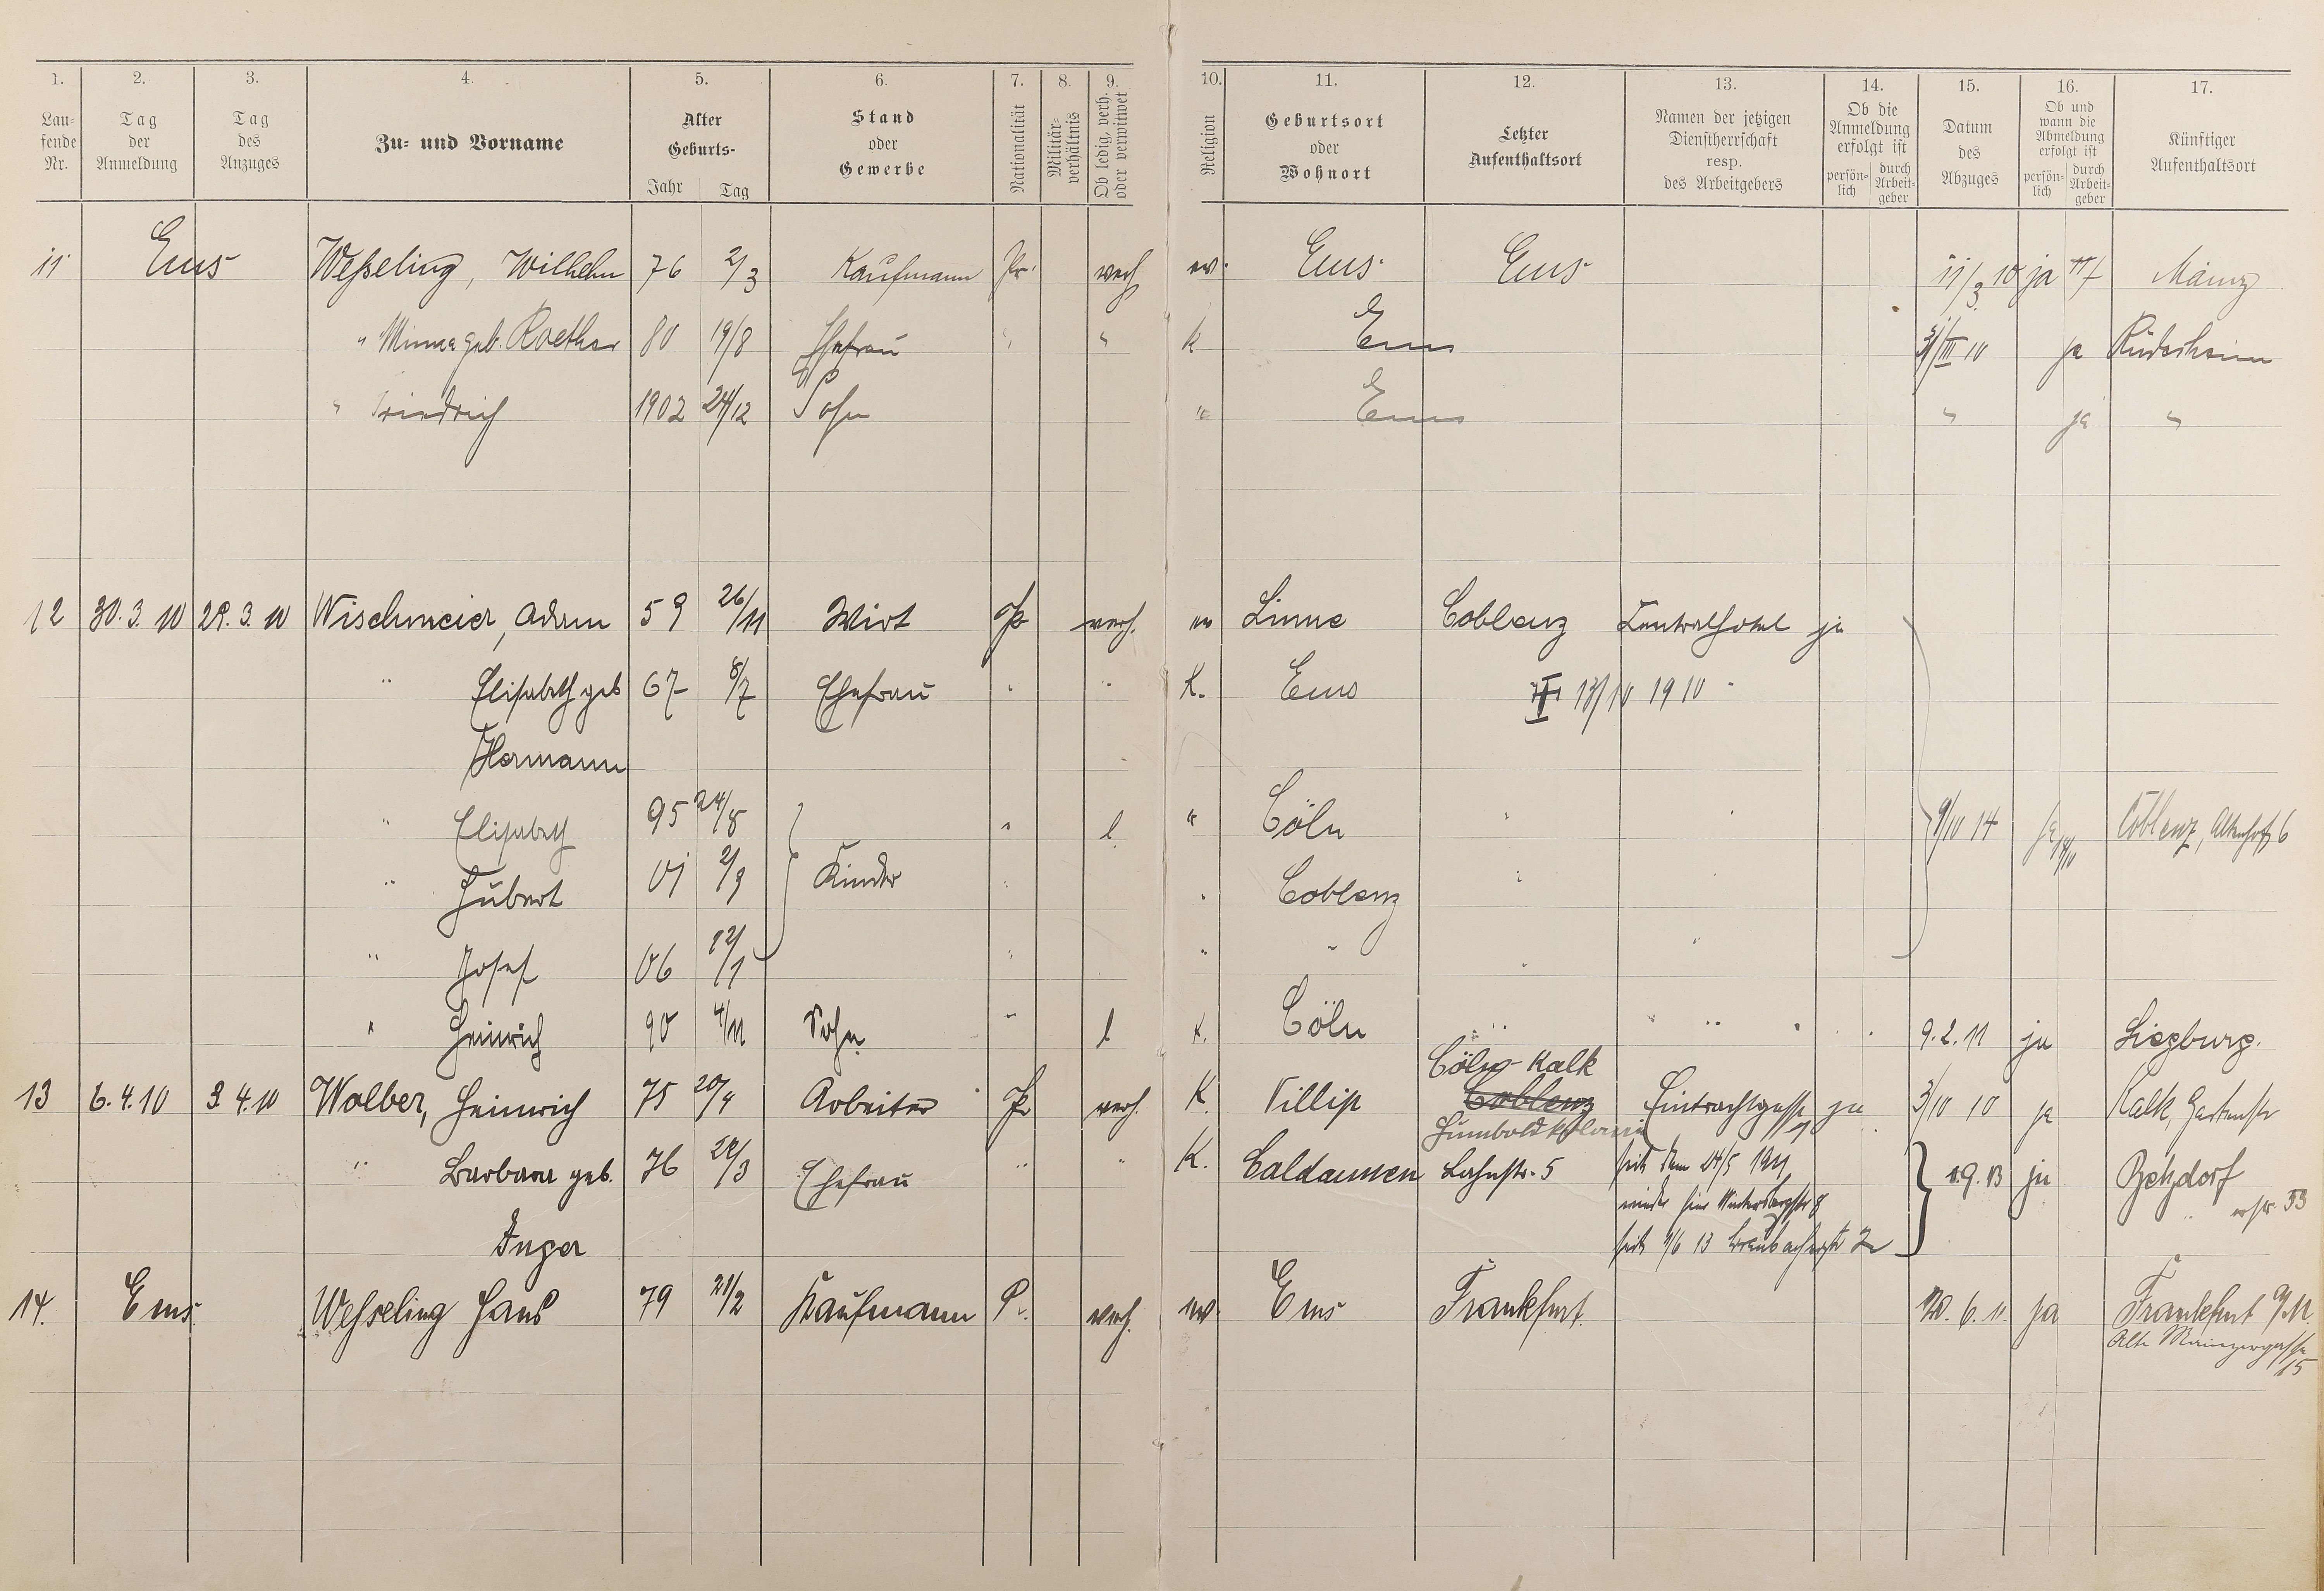 1. 2. 3. 4. 5. 6. 7. 8. 9. 10. 11. 12. 13. 14. 15. 16. 17.
Lau-
fende
Nr.
Tag
der
Anmeldung
Tag
des
Anzuges
Zu- und Vorname
Alter
Geburts-
Jahr Tag
Stand
oder
Gewerbe
Nationalität
Militär-
verhältnis
Ob ledig, verh.
oder verwitwet
Religion
Geburtsort
oder
Wohnort
Letzter
Aufenthaltsort
Namen der jetzigen
Dienstherrschaft
resp.
des Arbeitgebers
Ob die
Anmeldung
erfolgt ist
persön-
lich
durch
Arbeit-
geber
Datum
des
Abzuges
Ob und
wann die
Abmeldung
erfolgt ist
persön-
lich
durch
Arbeit-
geber
Künftiger
Aufenthaltsort
11 Ems Weßeling, Wilhelm 76 2/3 Kaufmann Pr. verh ev. Ems Ems 11/3 10 ja Mainz
" Minna geb. Roether 80 19/8 Ehefrau " " k Ems 31/III 10 ja Rüdesheim
" Friedrich 1902 24/12 Sohn " Ems " ja "
12 30.3.10 29.3.10 Wischmeier, Adam 59 26/11 Wirt Pr verh. ev Linne Coblenz Zentralhotel ja
" Elisabeth geb 67 8/7 Ehefrau " " K. Ems 13/10 1910
Hermann
" Elisabeth 95 24/8 " l. " Cöln " " 9/10 14 ja Coblenz, Altenhof 6
" Hubert 01 2/9 Kinder " " Coblenz " "
" Josef 06 12/1 " " " " "
" Heinrich 90 4/11 Sohn " l K. Cöln " " 9.2.11 ja Siegburg.
Cöln-Kalk
13 6.4.10 3.4.10 Wolber, Heinrich 75 20/4 Arbeiter Pr verh. K. Villip Coblenz Eintrachtgasse ja 3/10 10 ja Kalk, Gartenstr
Humboldtkolonie 1
" Barbara geb. 76 22/3 Ehefrau " " K. Caldauen Lahnstr. 5 seit dem 24/5 1911 1.9.13 ja Betzdorf
wieder hier Wintersbergstr 8
Inger seit 1/6 13 Braubacherstr 72
14. Ems Weßeling Hans 79 21/2 Kaufmann P. verh. ev. Ems Frankfurt. 20.6.11. ja Frankfurt a/M.
Alte Mainzergasse
15